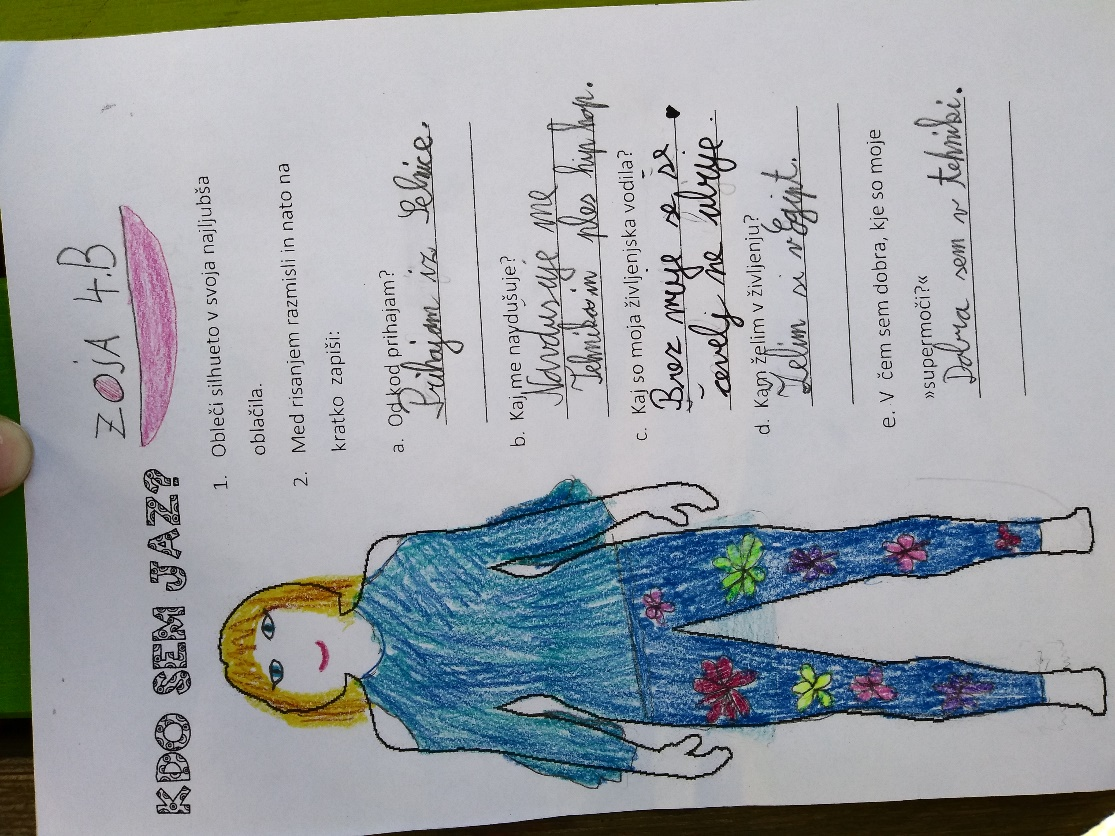 KDO SEM JAZ?
ZOJA 4.B
1. Obleči silhueto v svoja najljubša
oblačila.
2. Med risanjem razmisli in nato na
kratko zapiši:
a. Od kod prihajam?
Prihajam iz Selnice.
b. Kaj me navdušuje?
Navdusuje me
Tehnika in ples hip hop.
c. Kaj so moja življenjska vodila?
Brez muje se še
čevelj ne obuje.
d. Kam želim v življenju?
Želim si v Egipt.
e. V čem sem dobra, kje so moje
»supermoči?«
Dobra sem v tehniki.